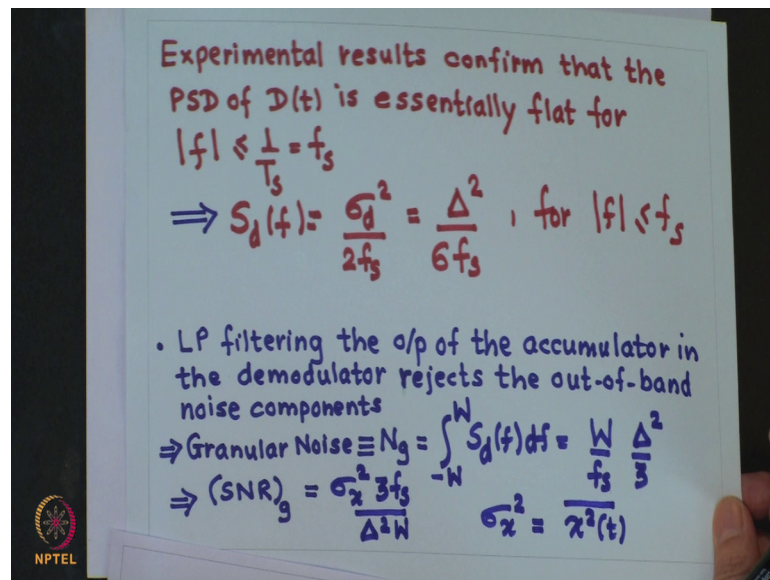 Experimental results confirm that the
PSD of D(t) is essentially flat for
|f| ≤ 1/Ts = fs
⇒ Sd(f) = σd²/2fs = Δ²/6fs , for |f| ≤ fs
• LP filtering the o/p of the accumulator in
the demodulator rejects the out-of-band
noise components
⇒ Granular Noise ≡ Ng = ∫_{-W}^{W} Sd(f) df = W/fs Δ²/3
⇒ (SNR)g = σx² 3fs/Δ²W σx² = \overline{x²(t)}
NPTEL